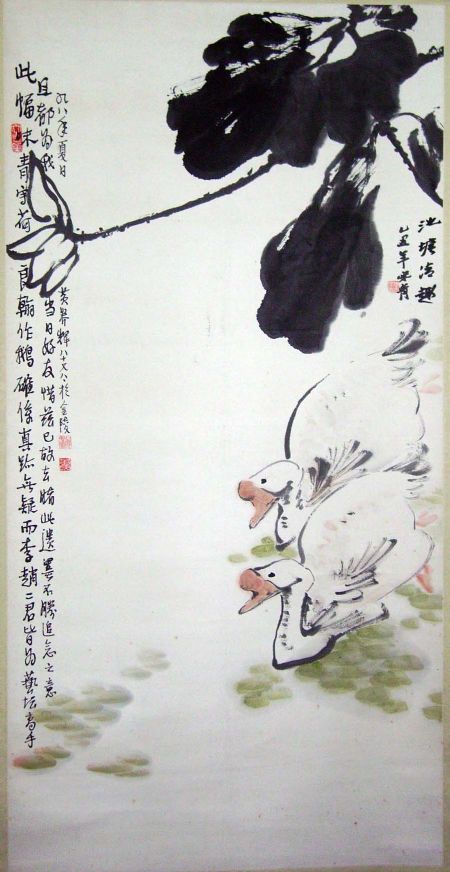 池塘清趣
乙丑年味青
此幅味青寫荷良翰作鵝確係真跡無疑而李趙二君皆為藝壇高手
且都為我當日好友惜茲已故去睹此遺墨不勝追念之意
九八年夏日黃養輝八十又八於金陵